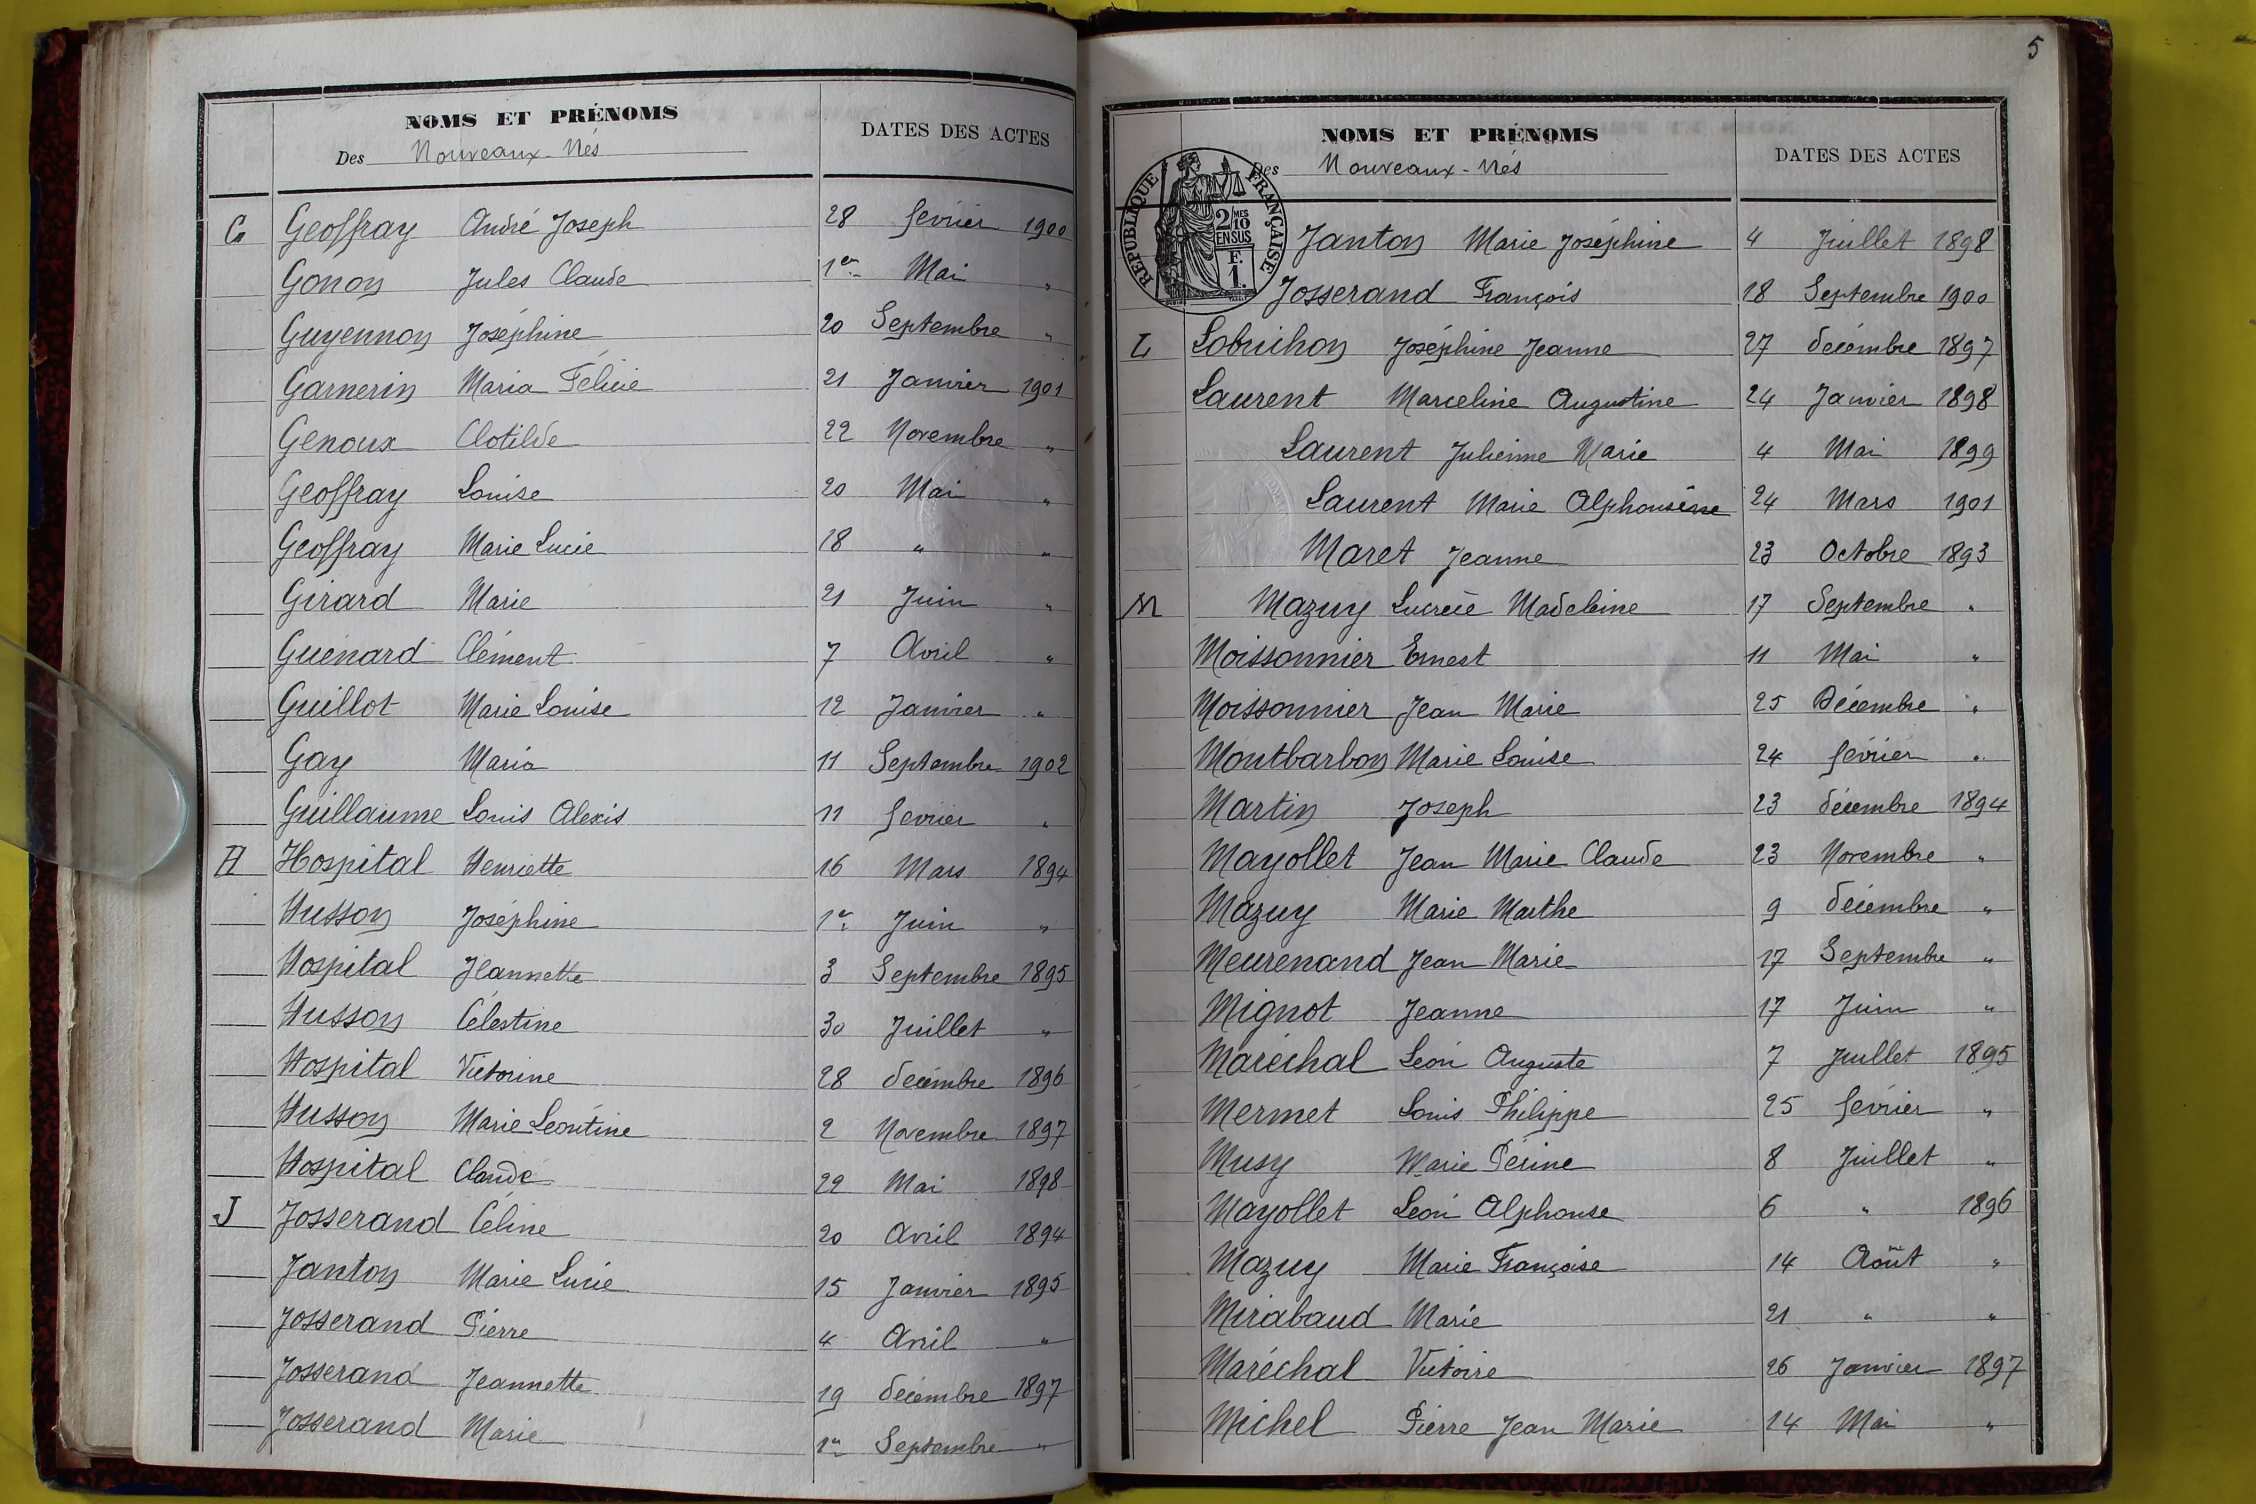 NOMS ET PRÉNOMS DATES DES ACTES
Des Nouveaux-Nés
G Geoffray André Joseph 28 février 1900
Gonon Jules Claude 1er Mai "
Guyennon Joséphine 20 Septembre "
Garnerin Maria Félicie 21 Janvier 1901
Genoux Clotilde 22 Novembre "
Geoffray Louise 20 Mai "
Geoffray Marie Lucie 18 " "
Girard Marie 21 Juin "
Guénard Clément 7 Avril "
Guillot Marie Louise 12 Janvier "
Gay Maria 11 Septembre 1902
Guillaume Louis Alexis 11 février "
H Hospital Henriette 16 Mars 1894
Husson Joséphine 1er Juin "
Hospital Jeannette 3 Septembre 1895
Husson Célestine 30 Juillet "
Hospital Victorine 28 décembre 1896
Husson Marie Léontine 2 Novembre 1897
Hospital Claude 22 Mai 1898
J Josserand Céline 20 Avril 1894
Janton Marie Lucie 15 Janvier 1895
Josserand Pierre 4 Avril "
Josserand Jeannette 19 décembre 1897
Josserand Marie 1er Septembre "
5
NOMS ET PRÉNOMS DATES DES ACTES
Des Nouveaux-Nés
RÉPUBLIQUE FRANÇAISE
2/10 MES
EN SUS
F.
1.
Janton Marie Joséphine 4 Juillet 1898
Josserand François 18 Septembre 1900
L Lobrichon Joséphine Jeanne 27 décembre 1897
Laurent Marceline Augustine 24 Janvier 1898
Laurent Julienne Marie 4 Mai 1899
Laurent Marie Alphonsine 24 Mars 1901
Maret Jeanne 23 Octobre 1893
M Mazuy Lucrèce Madeleine 17 Septembre "
Moissonnier Ernest 11 Mai "
Moissonnier Jean Marie 25 Décembre "
Montbarbon Marie Louise 24 février "
Martin Joseph 23 décembre 1894
Mayollet Jean Marie Claude 23 Novembre "
Mazuy Marie Marthe 9 décembre "
Meurenand Jean Marie 17 Septembre "
Mignot Jeanne 17 Juin "
Maréchal Léon Auguste 7 Juillet 1895
Mermet Louis Philippe 25 février "
Musy Marie Périne 8 Juillet "
Mayollet Léon Alphonse 6 " 1896
Mazuy Marie Françoise 14 Août "
Mirabaud Marie 21 " "
Maréchal Victoire 26 Janvier 1897
Michel Pierre Jean Marie 14 Mai "